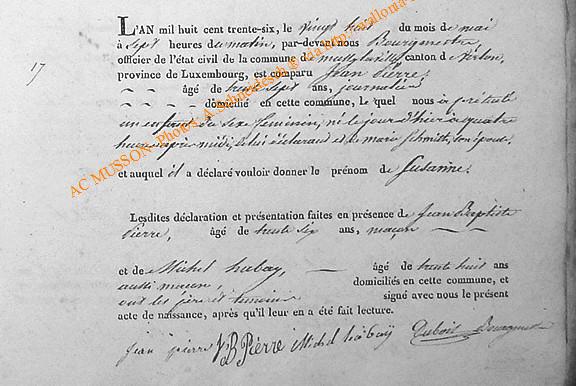 17
L'AN mil huit cent trente-six, le vingt huit du mois de mai
à sept heures du matin, par-devant nous Bourgmestre
officier de l'état civil de la commune de canton de Virton,
province de Luxembourg, est comparu Jean Pierre,
âgé de trente sept ans, journalier
domicilié en cette commune, le quel nous a présenté
un enfant du sexe feminin, né le jour d'hier à quatre
heures après midi, de lui déclarant et de marie Schmitt, son épouse,
et auquel il a déclaré vouloir donner le prénom de Susanne.
Lesdites déclaration et présentation faites en présence de Jean Baptiste
Pierre, âgé de trente six ans, maçon
et de Michel hubay, âgé de trente huit ans
aussi maçon, domiciliés en cette commune, et
ont les père et temoins signé avec nous le présent
acte de naissance, après qu'il leur en a été fait lecture.
jean pierre JB Pierre Michel Dubois Bourgmestre
AC MUSSON- Photo's A.Schroedesch